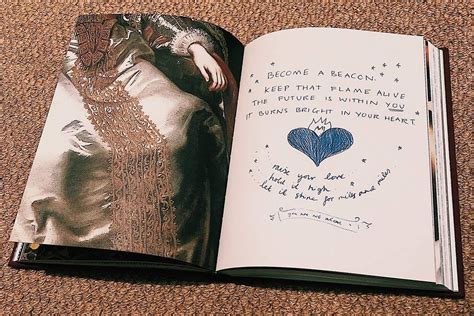 BECOME A BEACON.
KEEP THAT FLAME ALIVE
THE FUTURE IS WITHIN YOU
IT BURNS BRIGHT IN YOUR HEART.
raise your love
hold it high
let it shine for miles and miles
you are not alone